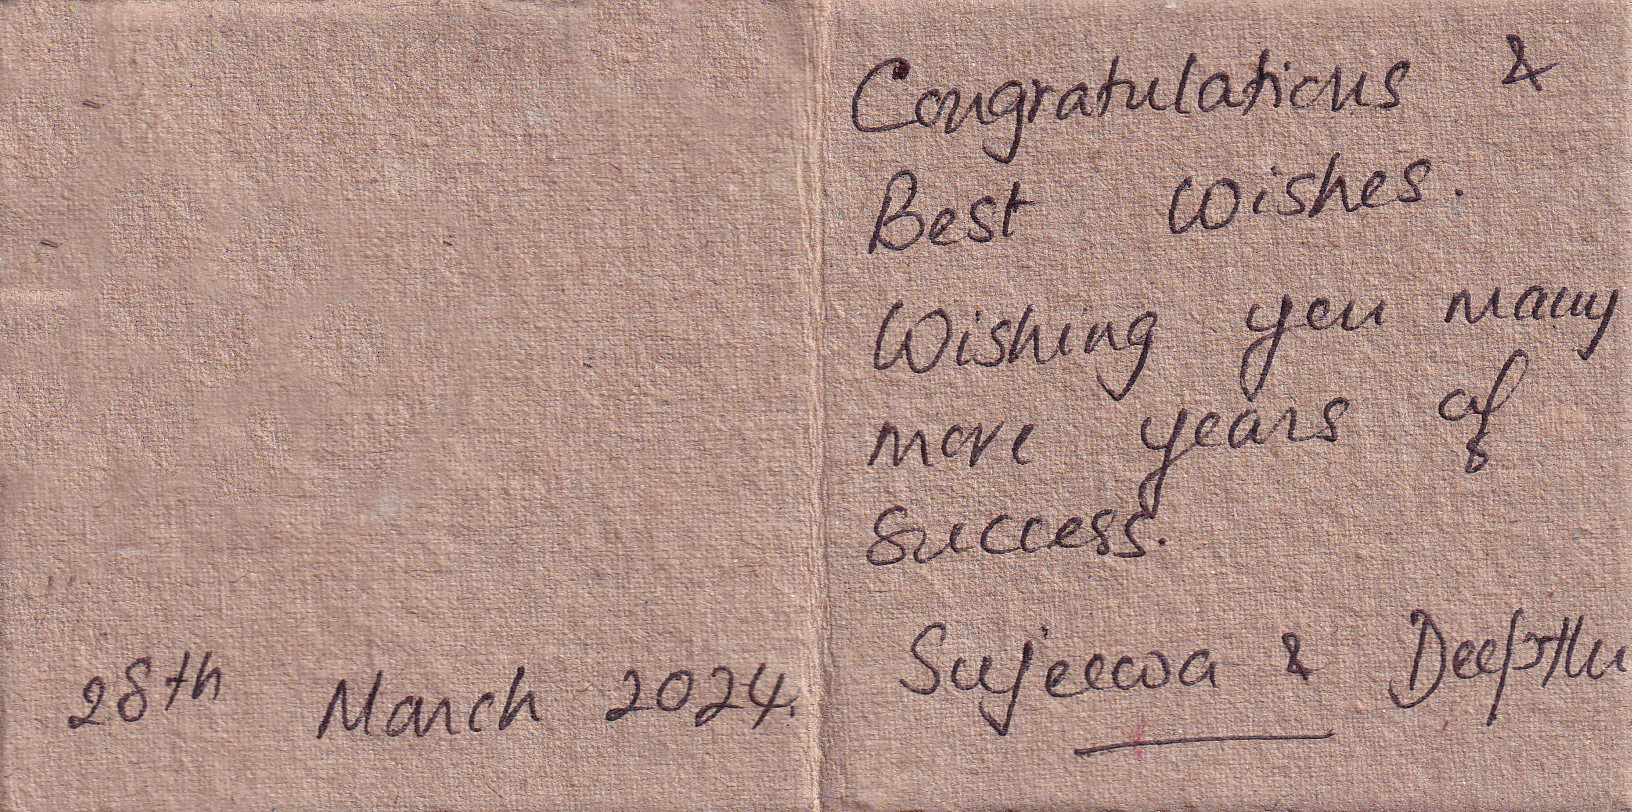 28th March 2024.
Congratulations &
Best Wishes.
Wishing you many
more years of
success.
Sujeewa &